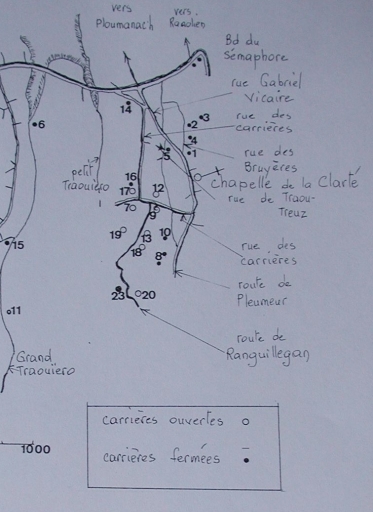 vers
Ploumanach
vers
Ranolien
Bd du
Sémaphore
rue Gabriel
Vicaire
14
3
2
6
rue des
carrières
4
5
1
rue des
Bruyères
petit
Traouiëro
16
17
12
chapelle de la Clarté
rue de Traou-
Treuz
7
9
19
13
10
15
18
8
rue des
carrières
route de
Pleumeur
23
20
11
route de
Ranguillegan
Grand
Traouïero
carrières ouvertes
1000
carrières fermées